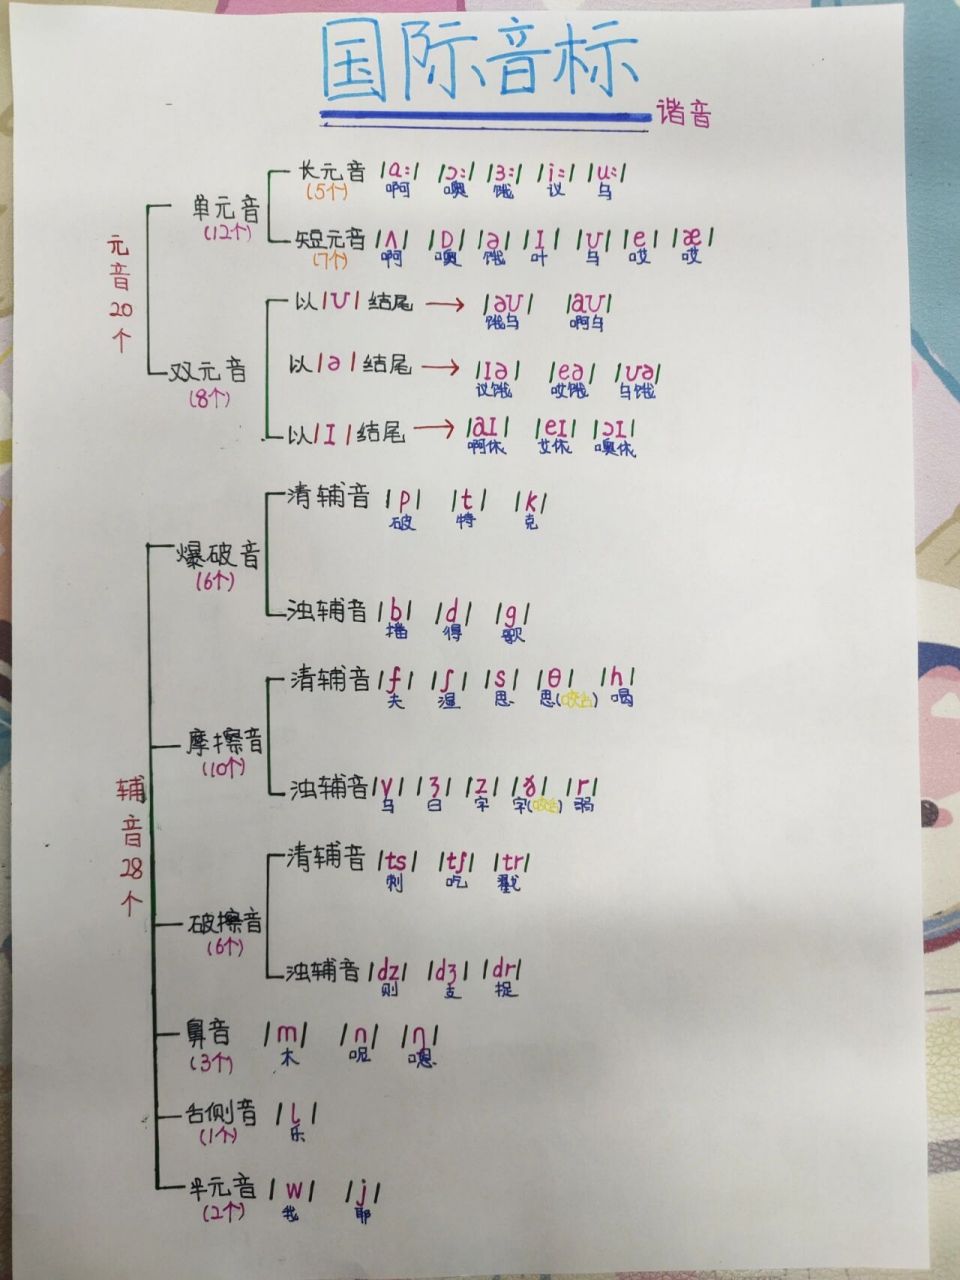 国际音标
谐音
元音20个
单元音
(12个)
长元音 /ɑ:/ /ɔ:/ /ɜ:/ /i:/ /u:/
(5个) 啊 噢 饿 议 乌
短元音 /ʌ/ /ɒ/ /ə/ /ɪ/ /ʊ/ /e/ /æ/
(7个) 啊 噢 饿 叶 乌 哎 哎
双元音
(8个)
以/ʊ/结尾 → /əʊ/ /aʊ/
饿乌 啊乌
以/ə/结尾 → /ɪə/ /eə/ /ʊə/
议饿 哎饿 乌饿
以/ɪ/结尾 → /aɪ/ /eɪ/ /ɔɪ/
啊依 艾依 噢依
辅音28个
爆破音
(6个)
清辅音 /p/ /t/ /k/
破 特 克
浊辅音 /b/ /d/ /g/
播 得 歌
摩擦音
(10个)
清辅音 /f/ /ʃ/ /s/ /θ/ /h/
夫 湿 思 思(咬舌) 喝
浊辅音 /v/ /ʒ/ /z/ /ð/ /r/
乌 日 字 字(咬舌) 弱
破擦音
(6个)
清辅音 /ts/ /tʃ/ /tr/
刺 吃 戳
浊辅音 /dz/ /dʒ/ /dr/
则 支 捉
鼻音 /m/ /n/ /ŋ/
(3个) 木 呢 嗯
舌侧音 /l/
(1个) 乐
半元音 /w/ /j/
(2个) 我 耶